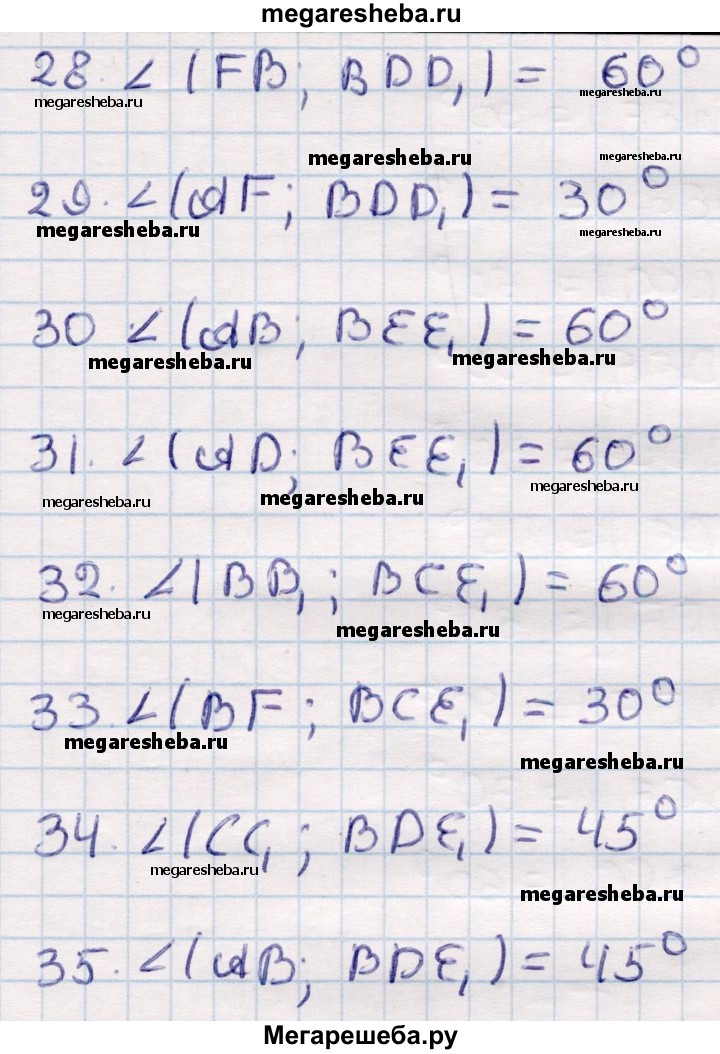 megaresheba.ru
28. ∠ (FB; BDD₁) = 60°
megaresheba.ru megaresheba.ru
megaresheba.ru megaresheba.ru
29. ∠(AF; BDD₁) = 30°
megaresheba.ru megaresheba.ru
30 ∠(AB; BEE₁) = 60°
megaresheba.ru megaresheba.ru
31. ∠(AD; BEE₁) = 60°
megaresheba.ru megaresheba.ru megaresheba.ru
32. ∠(BB₁; BCE₁) = 60°
megaresheba.ru megaresheba.ru
33. ∠(BF; BCE₁) = 30°
megaresheba.ru megaresheba.ru
34. ∠(CC₁; BDE₁) = 45°
megaresheba.ru megaresheba.ru
35. ∠(AB; BDE₁) = 45°
Мегарешеба.ру